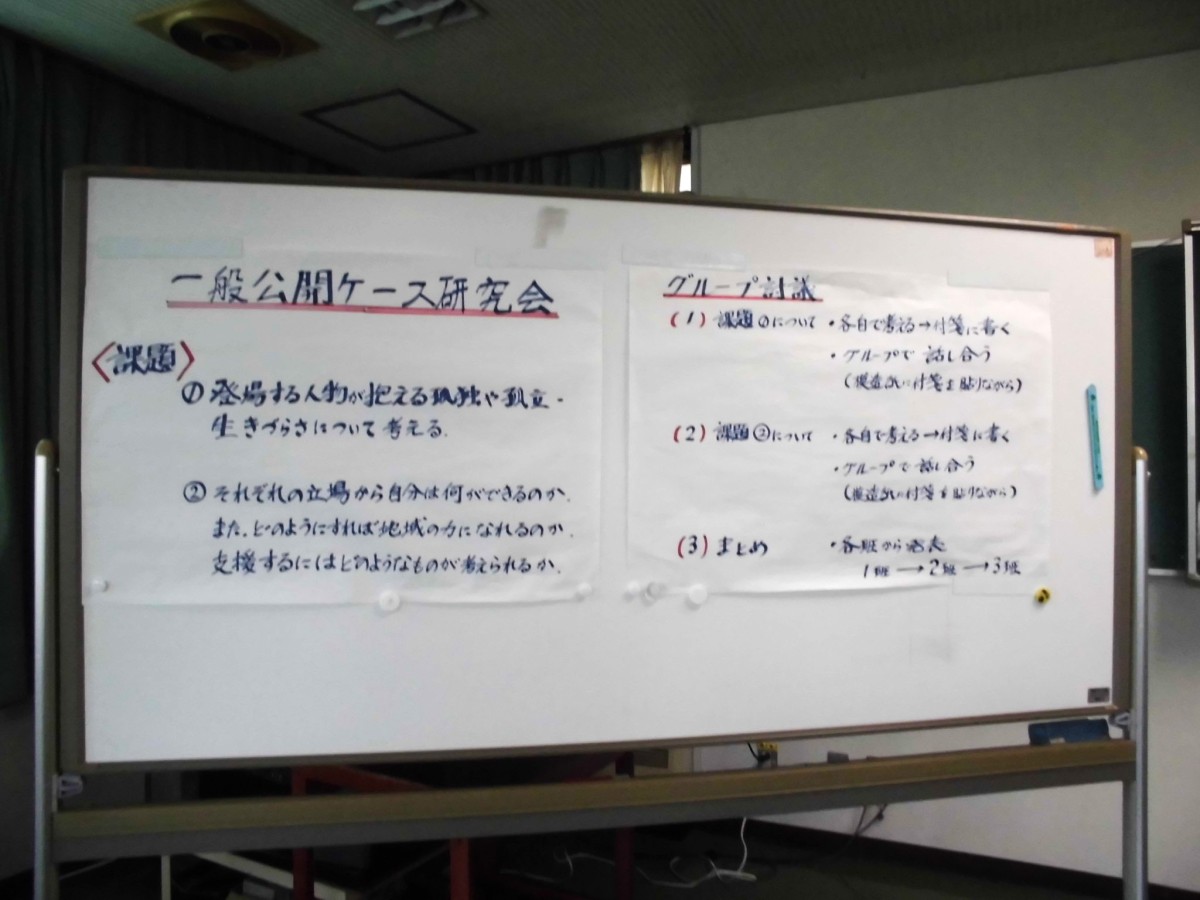 一般公開ケース研究会
〈課題〉
① 登場する人物が抱える孤独や孤立・
生きづらさについて考える.
② それぞれの立場から自分は何ができるのか.
また、どのようにすれば地域の力になれるのか.
支援するにはどのようなものが考えられるか.
グループ討議
(1) 課題①について ・各自で考える→付箋に書く
・グループで 話し合う
(模造紙に付箋を貼りながら)
(2) 課題②について ・各自で考える→付箋に書く
・グループで 話し合う
(模造紙に付箋を貼りながら)
(3) まとめ ・各班から発表
1班→2班→3班